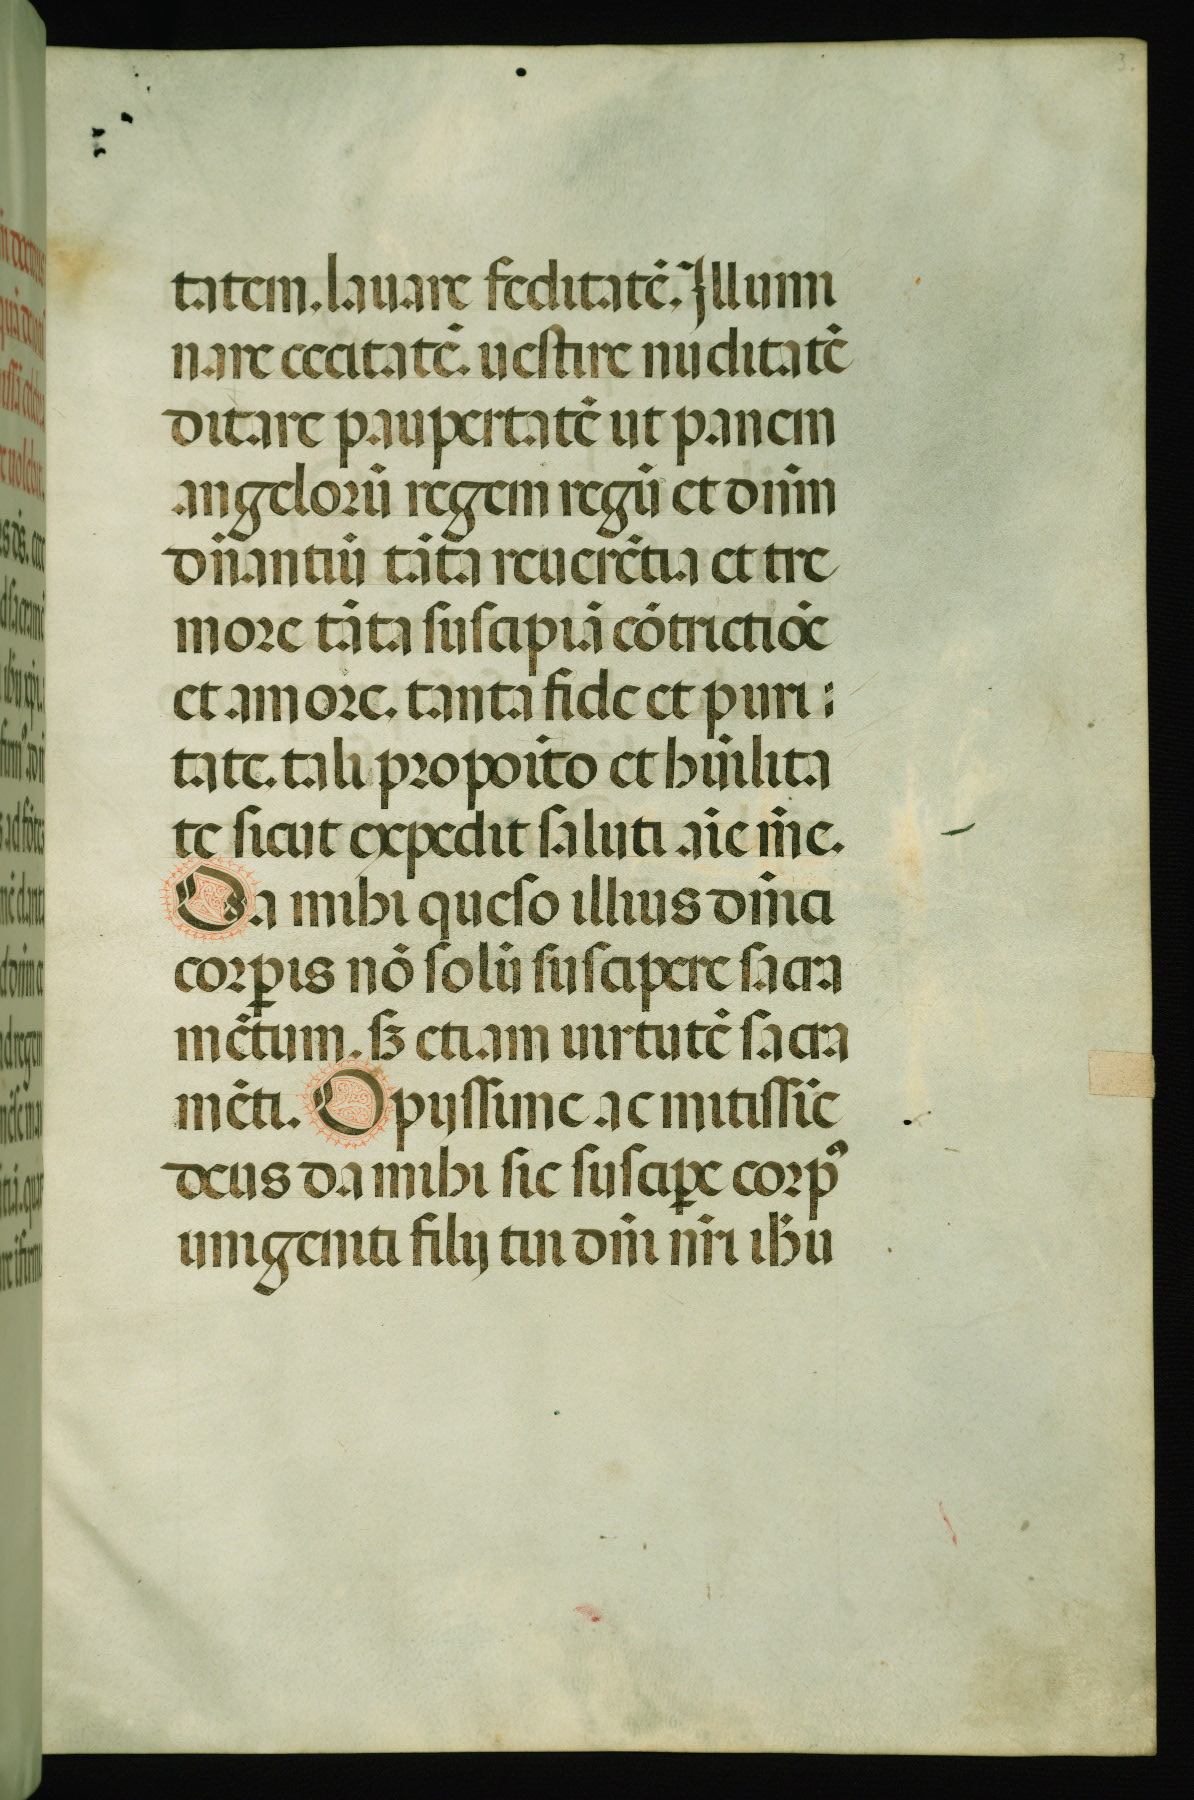 tatem. lauare feditatē. Illumi
nare cecitatē. uestire nuditatē
ditare paupertatē ut panem
angelorū regem regū et dn̄m
dn̄antiū tāta reuerētia et tre
more tāta suscipiā cōtrictiōe
et amore. tanta fide et puri :
tate. tali propoīto et hūilita
te sicut expedit saluti aīe m̄e.
Da mihi queso illius dn̄ica
corꝑis nō solū suscipere sacra
mētum. sꝫ etiam uirtutē sacra
mēti. O pijssime ac mitissīe
deus da mihi sic susciꝑe corpꝰ
unigeniti filij tui dn̄i nr̄i ih̄u